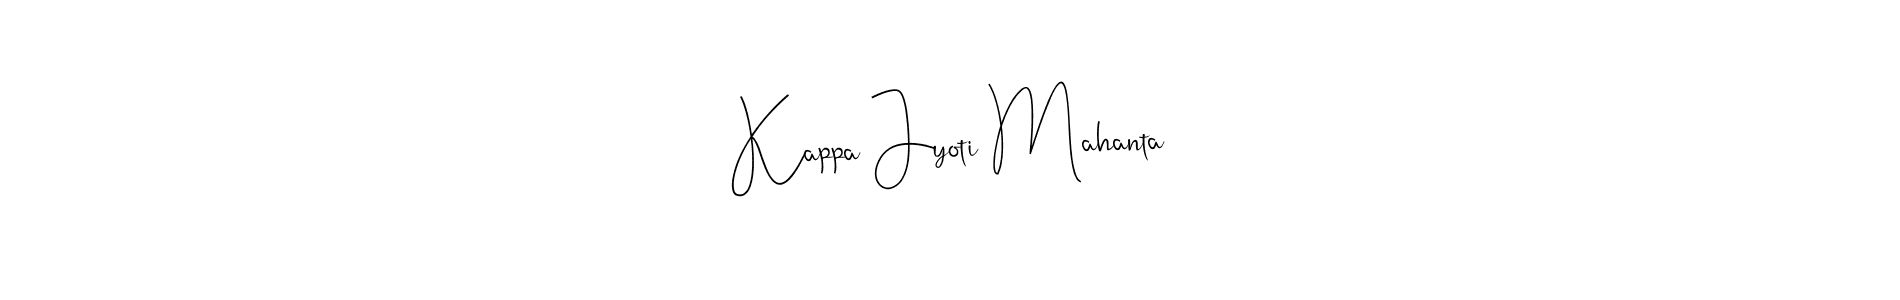 Kappa Jyoti Mahanta